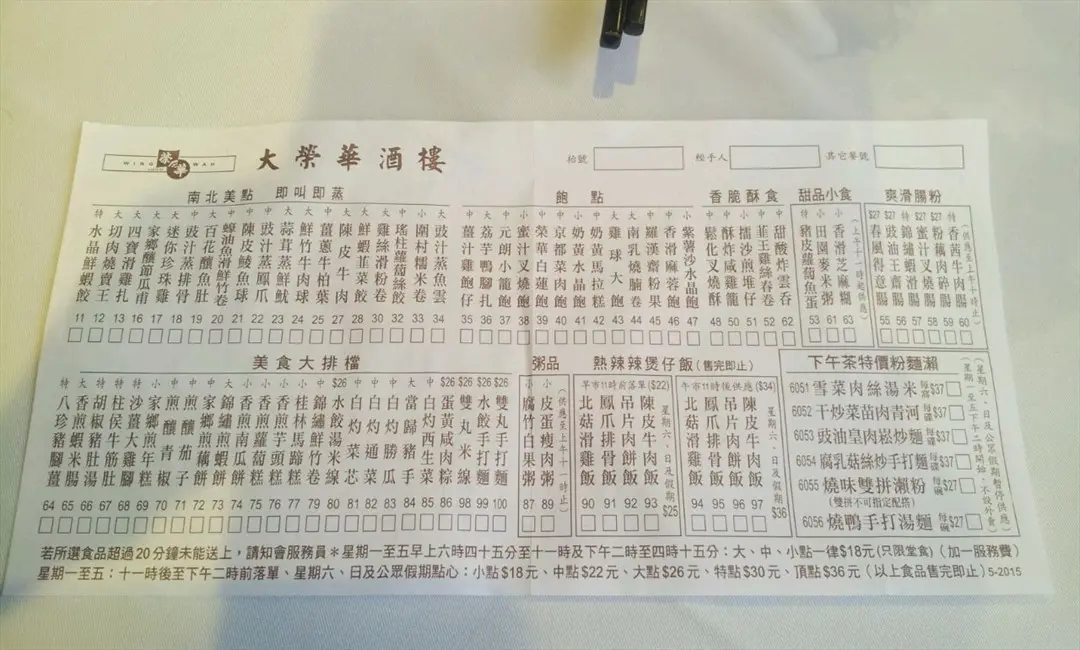 WING WAH
榮華
大榮華酒樓
枱號
經手人
其它餐號
南北美點 即叫即蒸
特 水晶鮮蝦餃 11
大 切肉燒賣王 12
大 四寶滑雞扎 13
大 家鄉釀節瓜甫 16
大 迷你珍珠雞 17
中 豉汁蒸排骨 19
大 百花釀魚肚 20
中 蠔油魚滑鮮竹卷 21
中 陳皮鯪魚球 22
中 豉汁蒸鳳爪 23
大 蒜茸蒸鮮魷 24
中 鮮竹牛肉球 25
中 薑蔥牛柏葉 27
中 陳皮牛肉 28
大 鮮蝦韭菜餃 29
中 雞絲滑粉卷 30
中 瑤柱蘿蔔絲餃 32
小 圍村糯米卷 33
大 豉汁蒸魚雲 34
飽點
中 薑汁雞飽仔 35
中 荔芋鴨腳扎 36
中 元朗小籠飽 37
小 蜜汁叉燒飽 38
中 榮華白蓮飽 39
中 京都菜肉飽 40
中 奶黃水晶飽 41
中 奶黃馬拉糕 42
中 雞球大飽 43
大 南乳燒腩卷 44
中 羅漢齋粉果 45
小 香滑麻蓉飽 46
大 紫薯沙水晶飽 47
香脆酥食
中 鬆化叉燒酥 48
中 酥炸咸雞籠 50
小 擂沙煎堆仔 51
中 韮王雞絲春卷 52
中 甜酸炸雲吞 62
甜品小食
特 豬皮蘿蔔魚蛋 53
小 田園麥米粥 61
小 香滑芝麻糊 63
(上午十一時起供應)
爽滑腸粉
$27 春風得意腸 55
$27 豉油王齋腸 56
特 錦繡蝦滑腸 57
$27 蜜汁叉燒腸 58
$27 粉藕肉碎腸 59
特 香茜牛肉腸 60
(供應至上午十時止)
美食大排檔
特 八珍豬腳薑 64
大 香煎蝦米腸 65
特 胡椒豬肚湯 66
特 柱侯牛筋腩 67
特 沙薑大雞腳 68
小 家鄉煎年糕 69
中 煎釀青椒 70
中 煎釀茄子 71
中 家鄉煎藕餅 72
大 錦繡煎蝦餅 73
小 香煎南瓜餅 74
小 香煎蘿蔔糕 75
小 香煎芋頭糕 76
小 桂林馬蹄糕 77
中 錦繡鮮竹卷 78
$26 水餃湯米線 80
中 白灼菜芯 81
中 白灼通菜 82
中 白灼勝瓜 83
大 當歸豬手 84
中 白灼西生菜 85
$26 蛋黃咸肉粽 86
$26 雙丸米線 98
$26 水餃手打麵 99
$26 雙丸手打麵 100
粥品
小 腐竹白果粥 87
小 皮蛋瘦肉粥 89
(供應至上午十一時止)
熱辣辣煲仔飯(售完即止)
早市11時前落單($22)
北菇滑雞飯 90
鳳爪排骨飯 91
吊片肉餅飯 92
陳皮牛肉飯 93
星期六、日及假期$25
午市11時後供應($34)
北菇滑雞飯 94
鳳爪排骨飯 95
吊片肉餅飯 96
陳皮牛肉飯 97
星期六、日及假期$36
下午茶特價粉麵瀨
6051 雪菜肉絲湯米 每窩$37
6052 干炒菜苗肉青河 每碟$37
6053 豉油皇肉崧炒麵 每碟$37
6054 腐乳菇絲炒手打麵 每碟$37
6055 燒味雙拼瀨粉 每碗$27
(雙拼不可指定配搭)
6056 燒鴨手打湯麵 每碗$27
(星期一至五下午二時開始,不設外賣)
(星期六、日及公眾假期暫停供應)
若所選食品超過20分鐘未能送上,請知會服務員*星期一至五早上六時四十五分至十一時及下午二時至四時十五分:大、中、小點一律$18元(只限堂食)(加一服務費)
星期一至五:十一時後至下午二時前落單、星期六、日及公眾假期點心:小點$18元、中點$22元、大點$26元、特點$30元、頂點$36元(以上食品售完即止)5-2015